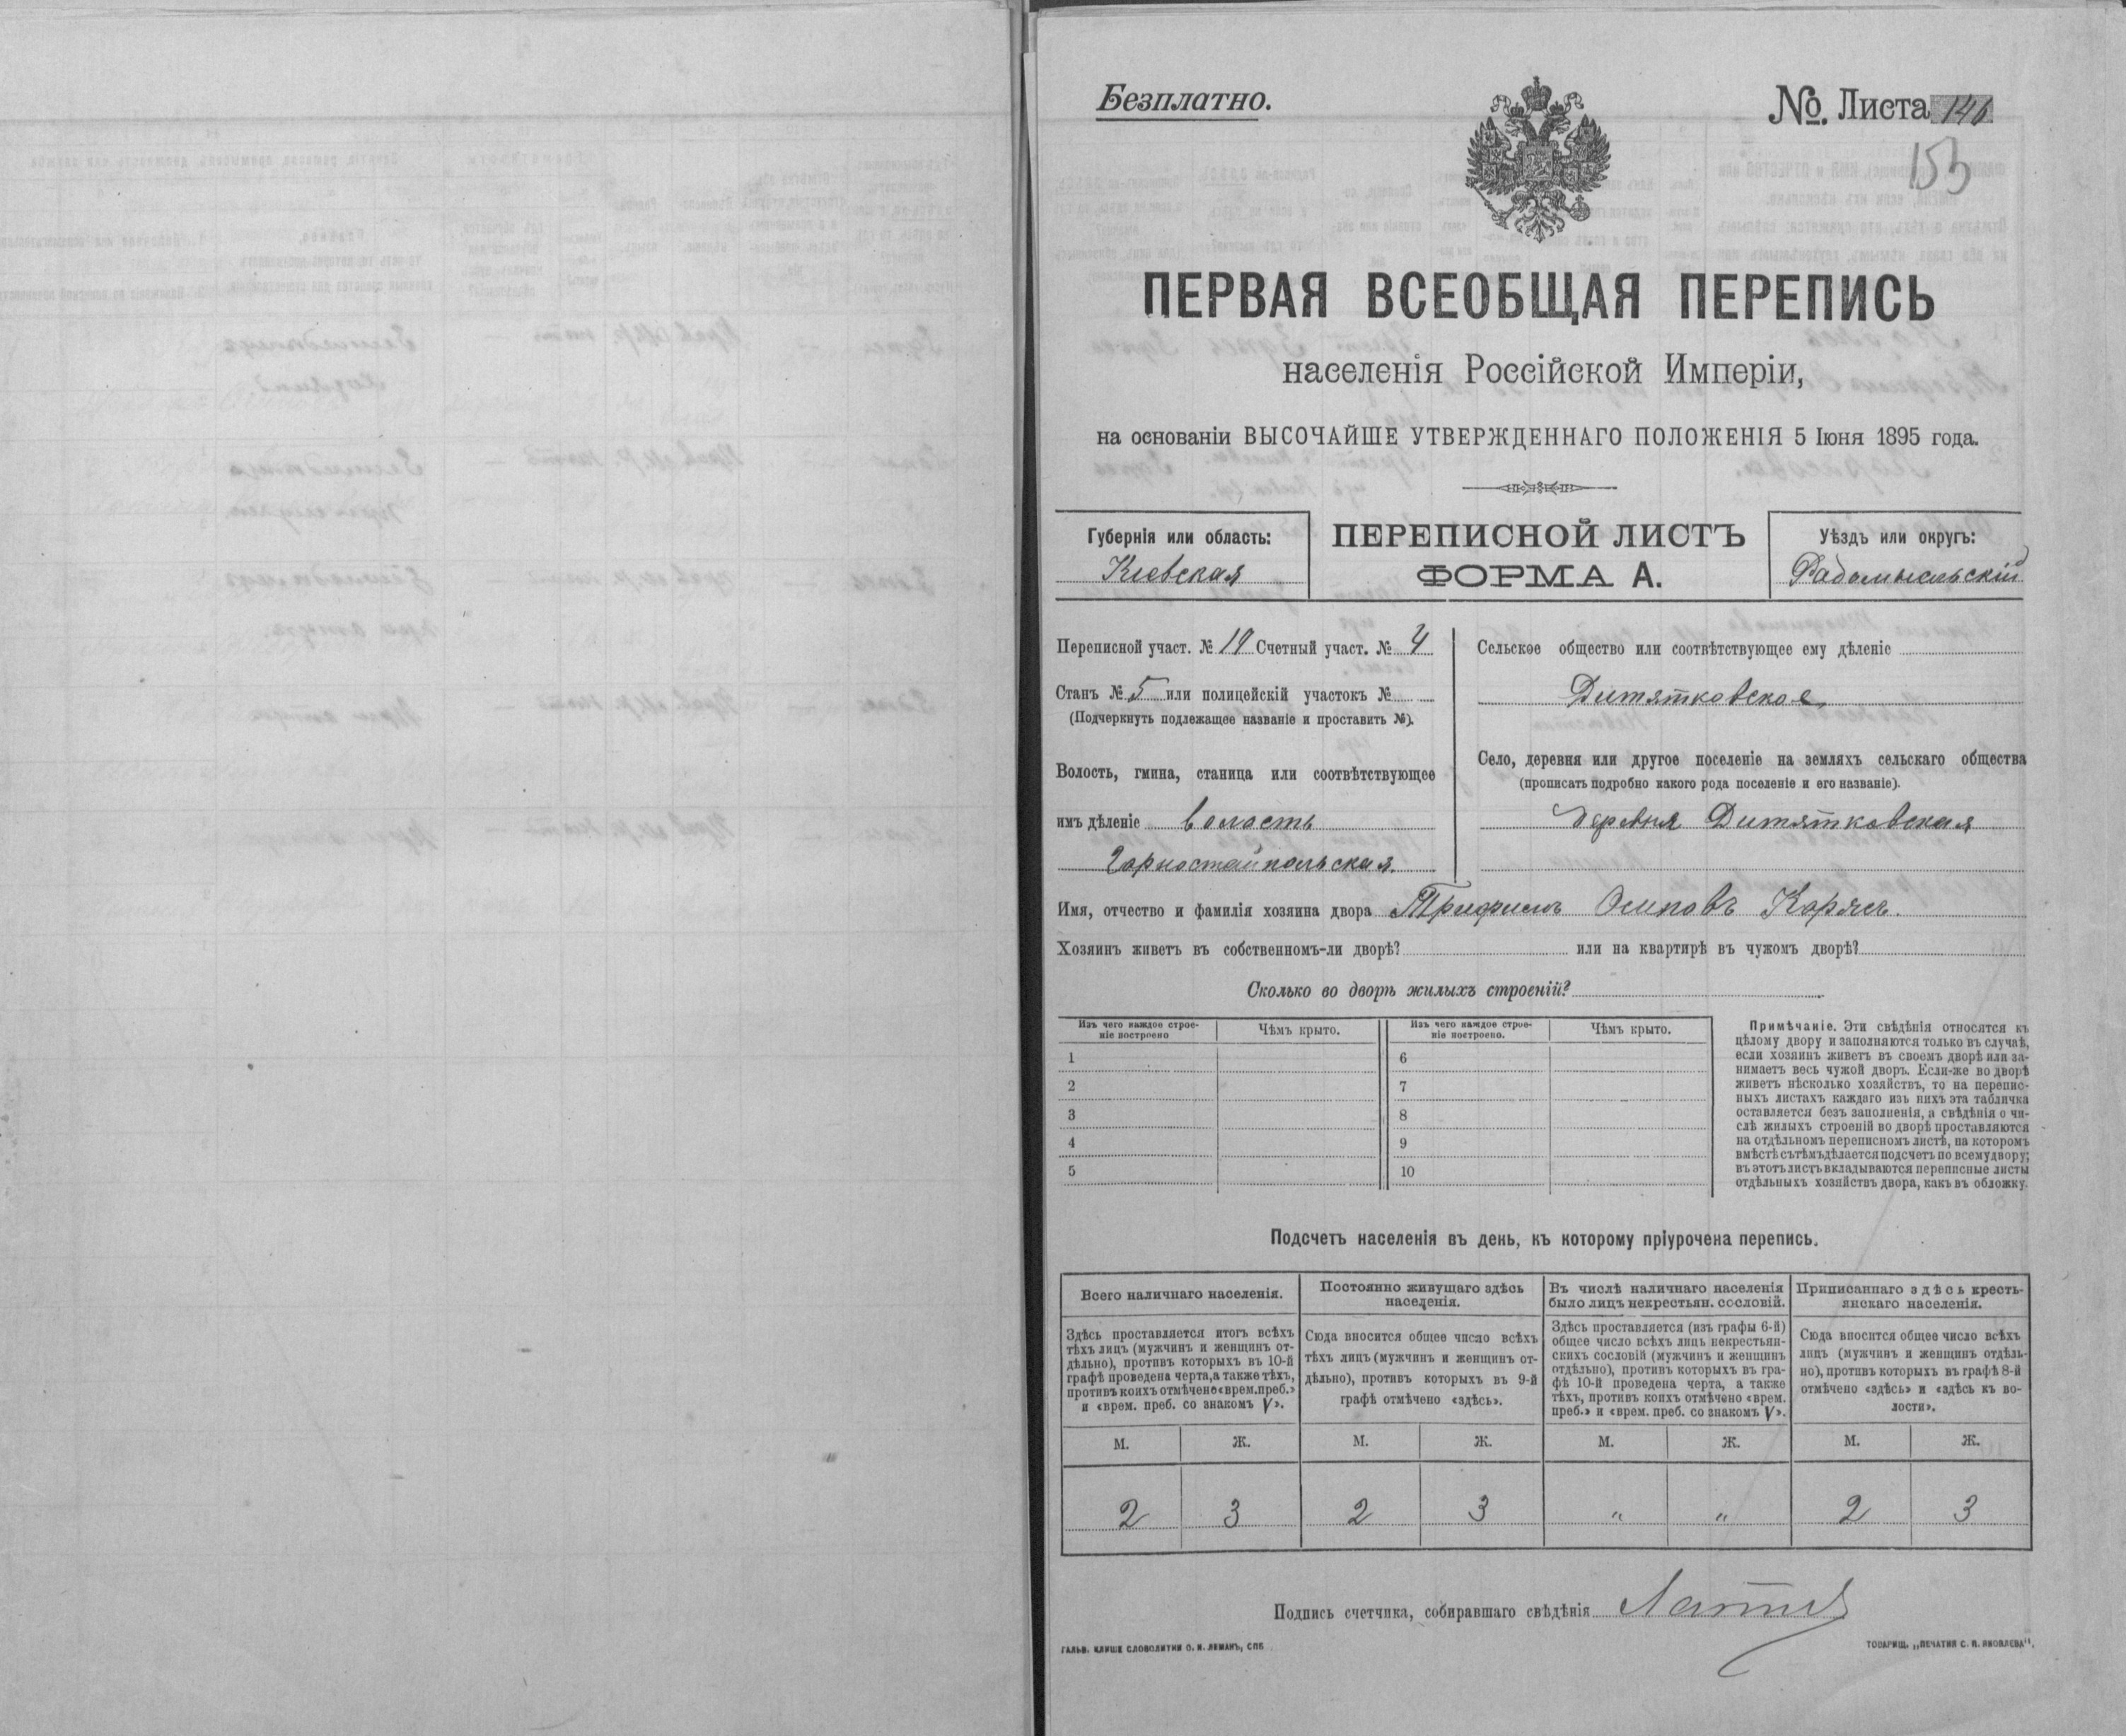 Безплатно.
№. Листа 146
153
ПЕРВАЯ ВСЕОБЩАЯ ПЕРЕПИСЬ
населенія Россійской Имперіи,
на основаніи ВЫСОЧАЙШЕ УТВЕРЖДЕННАГО ПОЛОЖЕНІЯ 5 Іюня 1895 года.
Губернія или область:
Кіевская
ПЕРЕПИСНОЙ ЛИСТЪ
ФОРМА А.
Уѣздъ или округъ:
Радомысльскій
Переписной участ. № 19 Счетный участ. № 4
Станъ № 5 или полицейскій участокъ №
(Подчеркнуть подлежащее названіе и проставить №).
Волость, гмина, станица или соотвѣтствующее
имъ дѣленіе волость
Горностайпольская.
Сельское общество или соотвѣтствующее ему дѣленіе
Дитятковское
Село, деревня или другое поселеніе на земляхъ сельскаго общества
(прописать подробно какого рода поселеніе и его названіе).
деревня Дитятковская
Имя, отчество и фамилія хозяина двора Осиповъ
Хозяинъ живетъ въ собственномъ-ли дворѣ? или на квартирѣ въ чужомъ дворѣ?
Сколько во дворѣ жилыхъ строеній?
Изъ чего каждое строе-
ніе построено
Чѣмъ крыто.
Изъ чего каждое строе-
ніе построено.
Чѣмъ крыто.
1
2
3
4
5
6
7
8
9
10
Примѣчаніе. Эти свѣдѣнія относятся къ
цѣлому двору и заполняются только въ случаѣ,
если хозяинъ живетъ въ своемъ дворѣ или за-
нимаетъ весь чужой дворъ. Если-же во дворѣ
живетъ нѣсколько хозяйствъ, то на перепис-
ныхъ листахъ каждаго изъ нихъ эта табличка
оставляется безъ заполненія, а свѣдѣнія о чи-
слѣ жилыхъ строеній во дворѣ проставляются
на отдѣльномъ переписномъ листѣ, на которомъ
вмѣстѣ съ тѣмъ дѣлается подсчетъ по всему двору;
въ этотъ листъ вкладываются переписные листы
отдѣльныхъ хозяйствъ двора, какъ въ обложку.
Подсчетъ населенія въ день, къ которому пріурочена перепись.
Всего наличнаго населенія.
Здѣсь проставляется итогъ всѣхъ
тѣхъ лицъ (мужчинъ и женщинъ от-
дѣльно), противъ которыхъ въ 10-й
графѣ проведена черта, а также тѣхъ,
противъ коихъ отмѣчено «врем. преб.»
и «врем. преб. со знакомъ V».
Постоянно живущаго здѣсь
населенія.
Сюда вносится общее число всѣхъ
тѣхъ лицъ (мужчинъ и женщинъ от-
дѣльно), противъ которыхъ въ 9-й
графѣ отмѣчено «здѣсь».
Въ числѣ наличнаго населенія
было лицъ некрестьян. сословій.
Здѣсь проставляется (изъ графы 6-й)
общее число всѣхъ лицъ некрестьян-
скихъ сословій (мужчинъ и женщинъ
отдѣльно), противъ которыхъ въ гра-
фѣ 10-й проведена черта, а также
тѣхъ, противъ коихъ отмѣчено «врем.
преб.» и «врем. преб. со знакомъ V».
Приписаннаго здѣсь кресть-
янскаго населенія.
Сюда вносится общее число всѣхъ
лицъ (мужчинъ и женщинъ отдѣль-
но), противъ которыхъ въ графѣ 8-й
отмѣчено «здѣсь» и «здѣсь къ во-
лости».
М. Ж. М. Ж. М. Ж. М. Ж.
2 3 2 3 " " 2 3
Подпись счетчика, собиравшаго свѣдѣнія
ГАЛЬВ. КЛИШЕ СЛОВОЛИТНИ О. И. ЛЕМАНЪ, СПБ
ТОВАРИЩ. „ПЕЧАТНЯ С. П. ЯКОВЛЕВА".